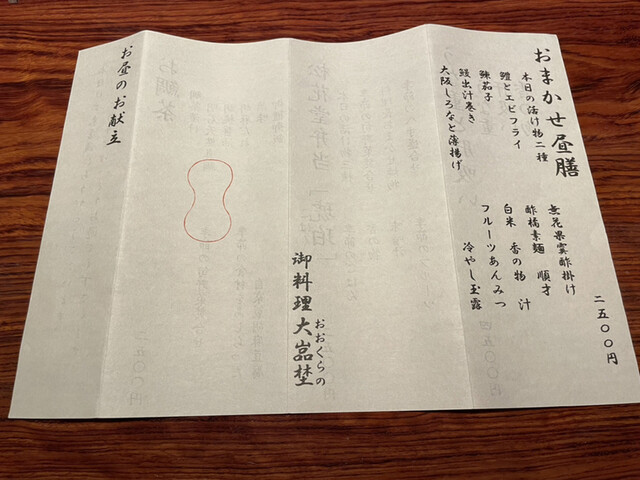 おまかせ昼膳
本日の活け物二種
鱧とエビフライ
鰊茄子
鰻出汁巻き
大阪しろなと薄揚げ
無花果霙酢掛け
酢橘素麺　順才
白米　香の物　汁
フルーツあんみつ
冷やし玉露
二五〇〇円
おおくらの
御料理 大嵓埜
お昼のお献立